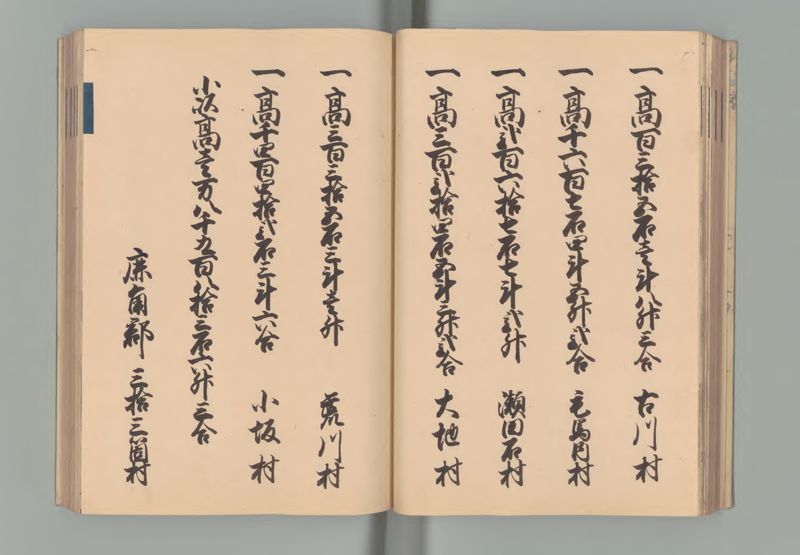 一高百三拾五石壱斗八升三合 古川村
一高千六百七石四斗五升弐合 毛馬内村
一高弐百六拾七石七斗弐升 瀬田石村
一高三百弐拾四石五斗三升弐合 大地村
一高三百三拾五石三斗壱升 荒川村
一高千四百四拾弐石三斗六合 小坂村
小以高壱万八千九百八拾三石六升三合
鹿角郡 三拾三箇村